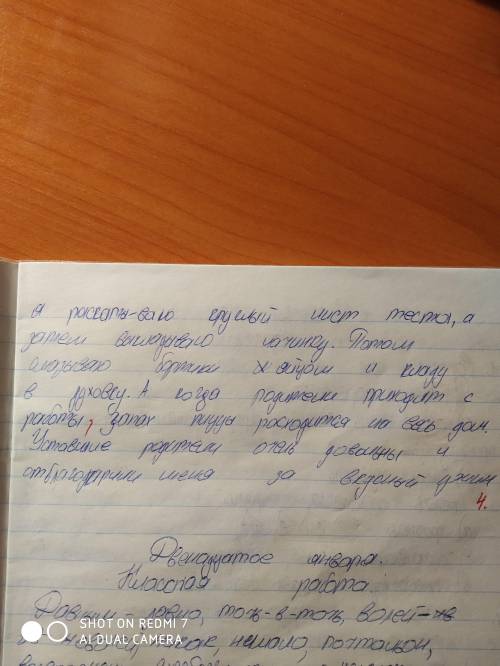 я раскаты-ваю круглый лист теста, а
затем выкладываю начинку. Потом
смазываю бортики яйцом и кладу
в духовку. А когда родители приходят с
работы, запах пиццы расходится на весь дом.
Уставшие родители очень довольны и
отблагодарили меня за вкусный ужин
4.
Двенадцатое января.
Классная работа.
Давным-давно, точь-в-точь,
немало, почтальон,
SHOT ON REDMI 7
AI DUAL CAMERA